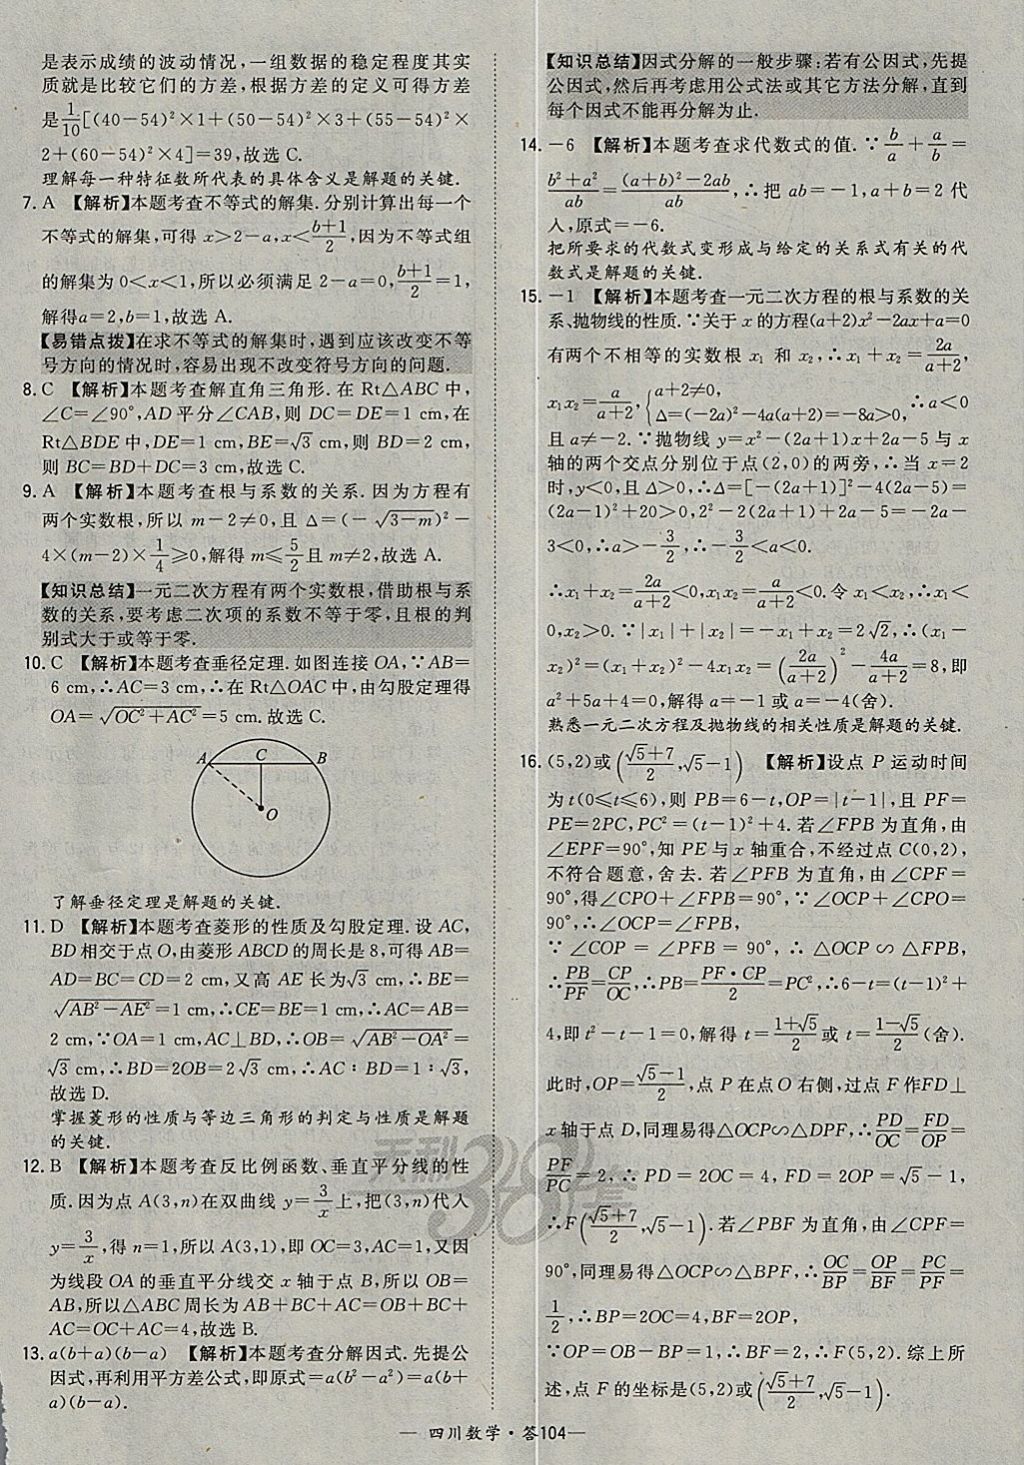 是表示成绩的波动情况,一组数据的稳定程度其实
质就是比较它们的方差,根据方差的定义可得方差
是1/10[(40-54)²×1+(50-54)²×3+(55-54)²×
2+(60-54)²×4]=39,故选 C.
理解每一种特征数所代表的具体含义是解题的关键.
7. A 【解析】本题考查不等式的解集.分别计算出每一个
不等式的解集,可得 x>2-a,x<(b+1)/2,因为不等式组
的解集为 0<x<1,所以必须满足 2-a=0,(b+1)/2=1,
解得a=2,b=1,故选 A.
【易错点拨】在求不等式的解集时,遇到应该改变不等
号方向的情况时,容易出现不改变符号方向的问题.
8. C 【解析】本题考查解直角三角形.在 Rt△ABC 中,
∠C=∠90°,AD平分∠CAB,则 DC=DE=1 cm,在
Rt△BDE 中,DE=1 cm,BE=√3 cm,则 BD=2 cm,
则 BC=BD+DC=3 cm,故选 C.
9. A 【解析】本题考查根与系数的关系.因为方程有
两个实数根,所以 m-2≠0,且 Δ=(-√(3-m))²-
4×(m-2)×1/4≥0,解得 m≤5/2且 m≠2,故选 A.
【知识总结】一元二次方程有两个实数根,借助根与系
数的关系,要考虑二次项的系数不等于零,且根的判
别式大于或等于零.
10. C 【解析】本题考查垂径定理.如图连接 OA,∵AB=
6 cm,∴AC=3 cm,∴在 Rt△OAC 中,由勾股定理得
OA=√(OC²+AC²)=5 cm.故选 C.
A C B
O
了解垂径定理是解题的关键.
11. D 【解析】本题考查菱形的性质及勾股定理.设 AC,
BD相交于点 O,由菱形 ABCD 的周长是 8,可得 AB=
AD=BC=CD=2 cm,又高 AE 长为√3 cm,∴BE=
√(AB²-AE²)=1 cm,∴CE=BE=1 cm,∴AC=AB=
2 cm,∵OA=1 cm,AC⊥BD,∴OB=√(AB²-OA²)=
√3 cm,∴BD=2OB=2√3 cm,∴AC∶BD=1∶√3,
故选 D.
掌握菱形的性质与等边三角形的判定与性质是解题
的关键.
12. B 【解析】本题考查反比例函数、垂直平分线的性
质.因为点 A(3,n)在双曲线 y=3/x上,把(3,n)代入
y=3/x,得 n=1,所以 A(3,1),即 OC=3,AC=1,又因
为线段 OA 的垂直平分线交 x 轴于点 B,所以 OB=
AB,所以△ABC 周长为 AB+BC+AC=OB+BC+
AC=OC+AC=4,故选 B.
13. a(b+a)(b-a) 【解析】本题考查分解因式.先提公
因式,再利用平方差公式,即原式=a(b²-a²)=a(b+
a)(b-a).
【知识总结】因式分解的一般步骤:若有公因式,先提
公因式,然后再考虑用公式法或其它方法分解,直到
每个因式不能再分解为止.
14. -6 【解析】本题考查求代数式的值.∵b/a+a/b=
(b²+a²)/ab=((a+b)²-2ab)/ab,∴把 ab=-1,a+b=2 代
入,原式=-6.
把所要求的代数式变形成与给定的关系式有关的代
数式是解题的关键.
15. -1 【解析】本题考查一元二次方程的根与系数的关
系、抛物线的性质.∵关于 x 的方程(a+2)x²-2ax+a=0
有两个不相等的实数根 x₁ 和 x₂,∴x₁+x₂=2a/(a+2),
x₁x₂=a/(a+2),{a+2≠0, Δ=(-2a)²-4a(a+2)=-8a>0, ∴a<0
且 a≠-2.∵抛物线 y=x²-(2a+1)x+2a-5 与 x
轴的两个交点分别位于点(2,0)的两旁,∴当 x=2
时,y<0,且 Δ>0,∴Δ=[-(2a+1)]²-4(2a-5)=
(2a-1)²+20>0,2²-2(2a+1)+2a-5=-2a-
3<0,∴a>-3/2,∴-3/2<a<0.
∴x₁+x₂=2a/(a+2)<0,x₁x₂=a/(a+2)<0.令 x₁<x₂,∴x₁<
0,x₂>0.∵|x₁|+|x₂|=-x₁+x₂=2√2,∴(x₁-
x₂)²=(x₁+x₂)²-4x₁x₂=(2a/(a+2))²-4a/(a+2)=8,即
a²+5a+4=0,解得 a=-1 或 a=-4(舍).
熟悉一元二次方程及抛物线的相关性质是解题的关键.
16. (5,2)或((√5+7)/2,√5-1) 【解析】设点 P 运动时间
为 t(0≤t≤6),则 PB=6-t,OP=|t-1|,且 PF=
PE=2PC,PC²=(t-1)²+4.若∠FPB 为直角,由
∠EPF=90°,知 PE与 x 轴重合,不经过点 C(0,2),
不符合题意,舍去.若∠PFB 为直角,由∠CPF=
90°,得∠CPO+∠FPB=90°,∵∠OCP+∠CPO=
90°,∴∠OCP=∠FPB,
∵∠COP=∠PFB=90°,∴△OCP∽△FPB,
∴PB/PF=CP/OC,∴PB=PF·CP/2=PC²,∴6-t=(t-1)²+
4,即 t²-t-1=0,解得 t=(1+√5)/2或 t=(1-√5)/2(舍).
此时,OP=(√5-1)/2,点 P 在点 O 右侧,过点 F 作FD⊥
x 轴于点 D,同理易得△OCP∽△DPF,∴PD/OC=FD/OP=
PF/PC=2,∴PD=2OC=4,FD=2OP=√5-1,
∴F((√5+7)/2,√5-1).若∠PBF 为直角,由∠CPF=
90°,同理易得△OCP∽△BPF,∴OC/BP=OP/BF=PC/PF=
1/2,∴BP=2OC=4,BF=2OP,
∵OP=OB-BP=1,∴BF=2,∴F(5,2).综上所
述,点 F 的坐标是(5,2)或((√5+7)/2,√5-1).
天利38套
— 四川数学·答104—